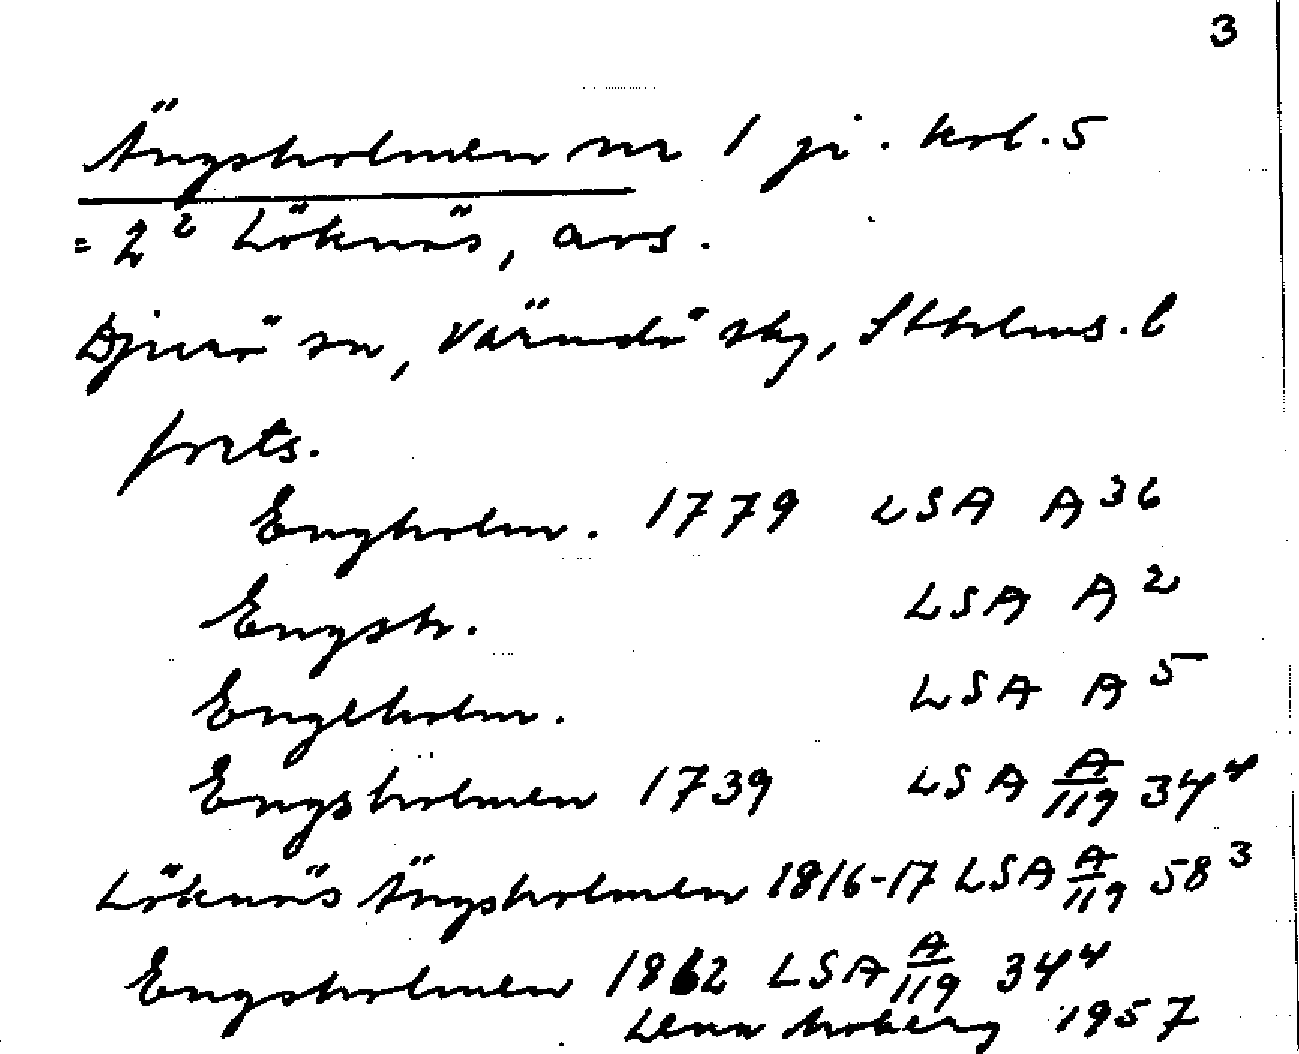 3
Ängsholmen nr 1 ji. kol. 5
= 2² Löknäs, avs.
Djurö sn, Värmdö skg, Stholms. l
forts.
Engholm. 1779 LSA A 36
Engsh. LSA A 2
Engeholm. LSA A 5
Engsholmen 1739 LSA A/119 34⁴
Löknäs Ängsholmen 1816-17 LSA A/119 58³
Engsholmen 1862 LSA A/119 34⁴
Lena Moberg 1957